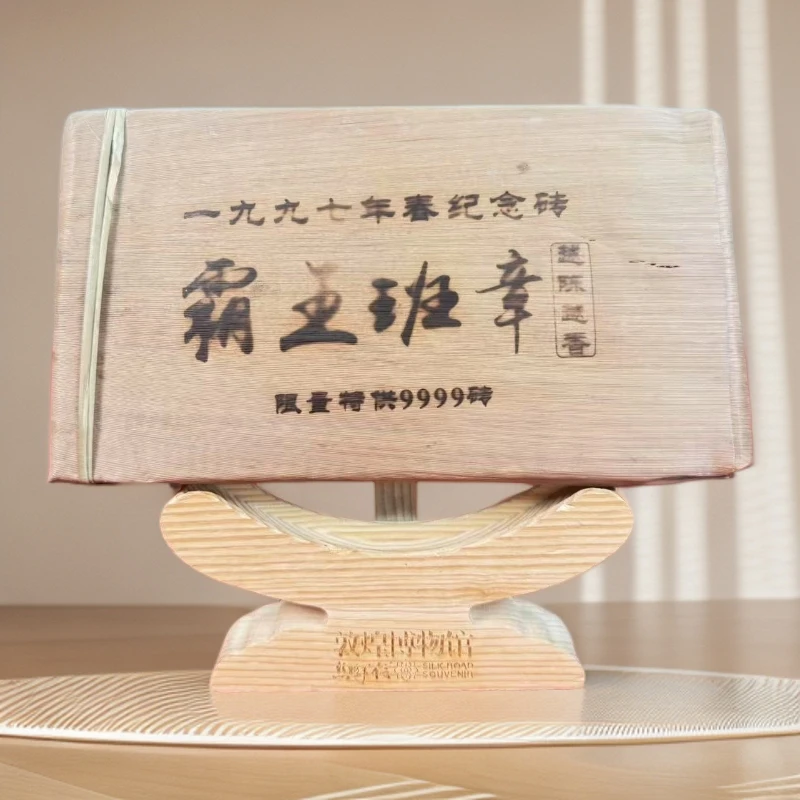 一九九七年春纪念砖
霸王班章
越陈越香
限量特供9999砖
敦煌博物馆
SILK ROAD
SOUVENIR